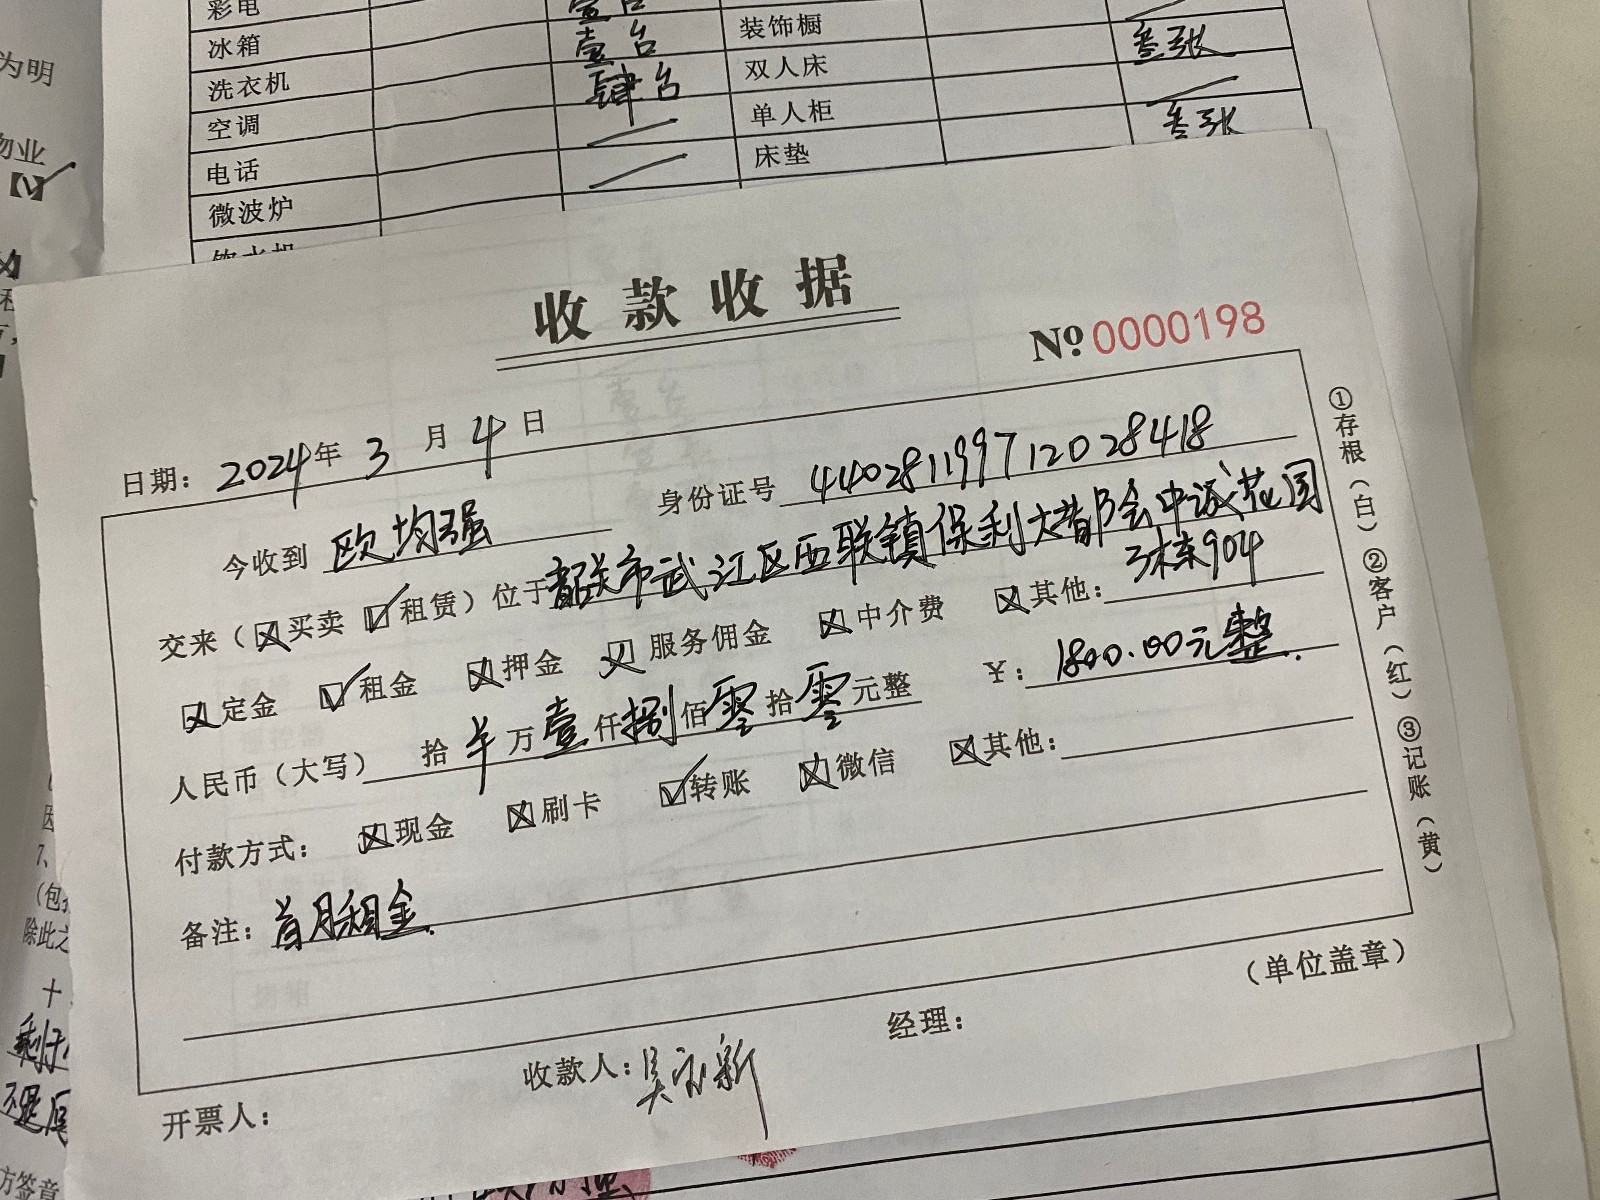 为明
物业
【√】
彩电 壹台
冰箱 壹台 装饰橱
洗衣机 肆台 双人床 叁张
空调 单人柜
电话 床垫 叁张
微波炉
饮水机
收款收据
№ 0000198
日期: 2024年 3 月 4 日
今收到 欧均强 身份证号 440281199712028418
交来(☒买卖 ☑租赁)位于韶关市武江区西联镇保利大都会中诚花园
3栋904
☒定金 ☑租金 ☒押金 ☒服务佣金 ☒中介费 ☒其他:
人民币(大写) 拾 羊 万 壹 仟 捌 佰 零 拾 零 元整 ¥: 1800.00元整.
付款方式: ☒现金 ☒刷卡 ☑转账 ☒微信 ☒其他:
备注: 首月租金.
(单位盖章)
经理:
收款人:
开票人:
①存根(白) ②客户(红) ③记账(黄)
7、
(包
除此之
十
方签章